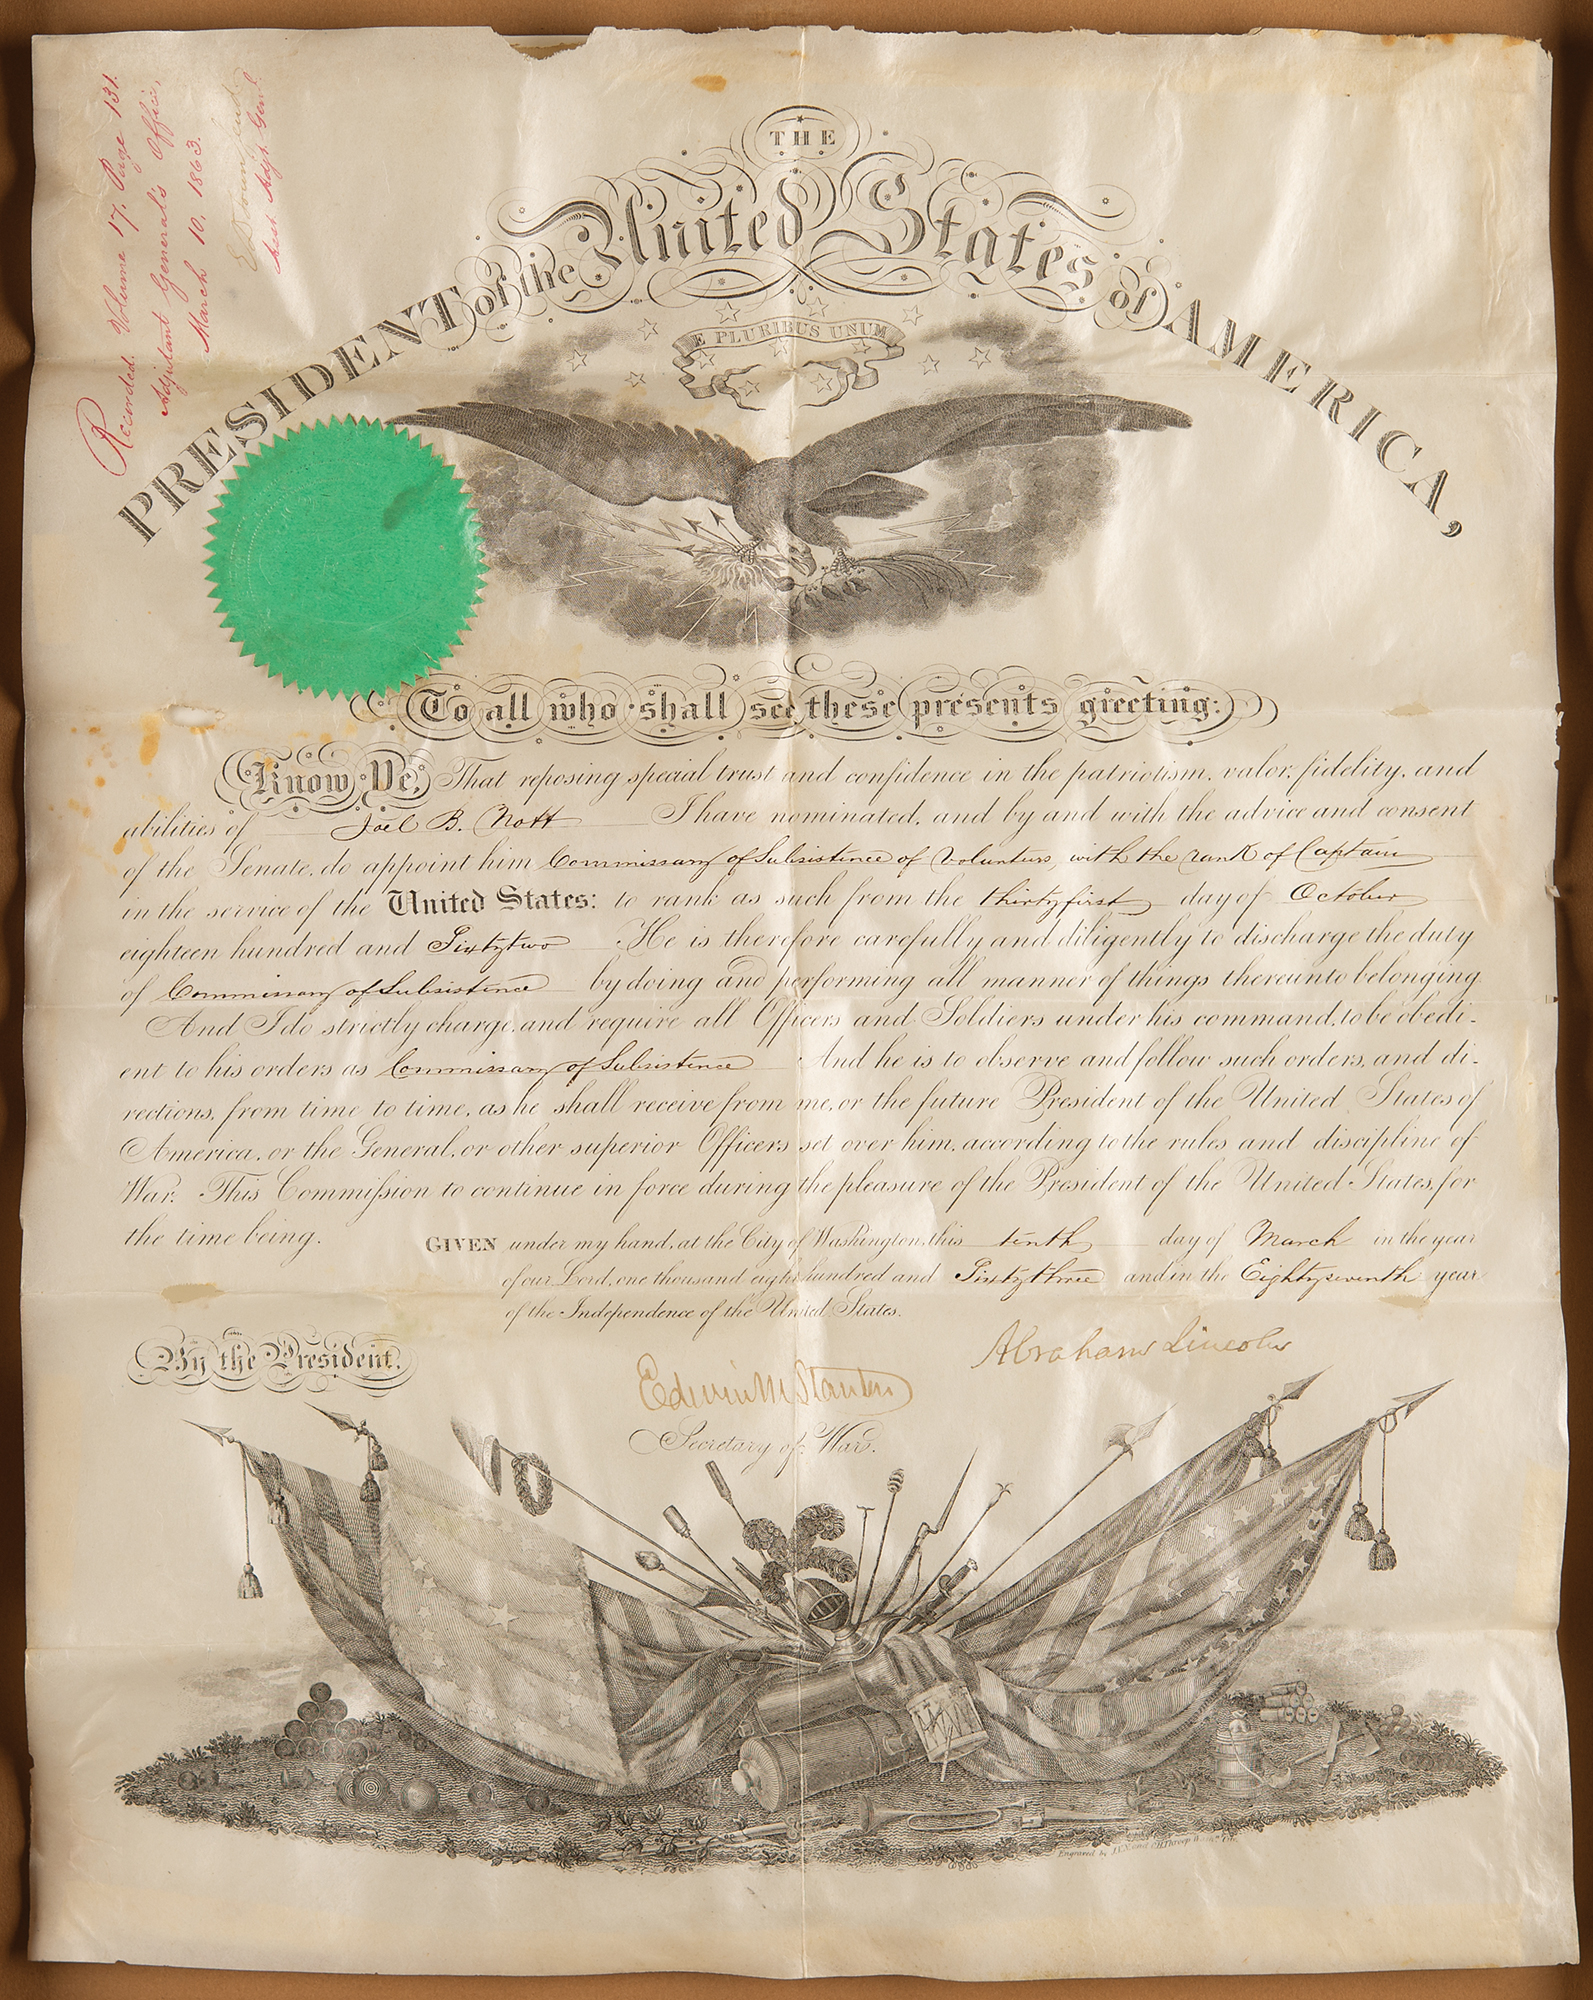 Recorded. Volume 17. Page 131.
Adjutant General's Office,
March 10, 1863.
E D Townsend
Asst Adjt. Genl
THE
PRESIDENT of the United States of AMERICA,
E PLURIBUS UNUM
To all who shall see these presents greeting:
Know Ye, That reposing special trust and confidence in the patriotism, valor, fidelity, and
abilities of Joel B. Nott I have nominated, and by and with the advice and consent
of the Senate, do appoint him Commissary of Subsistence of Volunteers, with the rank of Captain
in the service of the United States: to rank as such from the thirty first day of October
eighteen hundred and Sixty two He is therefore carefully and diligently to discharge the duty
of Commissary of Subsistence by doing and performing all manner of things thereunto belonging
And I do strictly charge, and require all Officers and Soldiers under his command, to be obedi-
ent to his orders as Commissary of Subsistence And he is to observe and follow such orders, and di-
rections, from time to time, as he shall receive from me, or the future President of the United States of
America, or the General, or other superior Officers set over him, according to the rules and discipline of
War. This Commission to continue in force during the pleasure of the President of the United States, for
the time being.
GIVEN under my hand, at the City of Washington, this tenth day of March in the year
of our Lord, one thousand eight hundred and Sixty three and in the Eighty seventh year
of the Independence of the United States.
Abraham Lincoln
By the President.
Edwin M Stanton
Secretary of War.
Engraved by